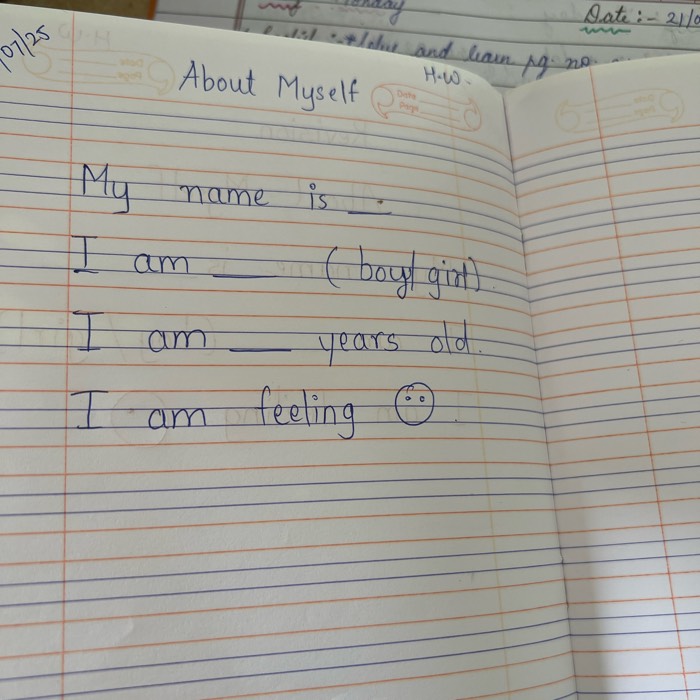 Monday
Date :- 21/0
and learn pg. no.
07/25
H.W.
About Myself
Date
Page
My name is __.
I am ___ (boy/girl).
I am ___ years old.
I am feeling ☺.